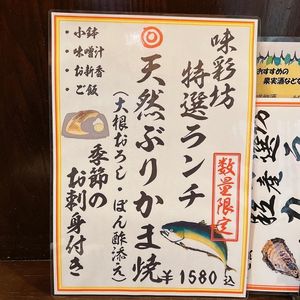 味彩坊
特選ランチ
数量限定
天然ぶりかま焼
(大根おろし・ぽん酢添え)
季節の
お刺身付き
¥1580込
・小鉢
・味噌汁
・お新香
・ご飯
おすすめの
果実酒など